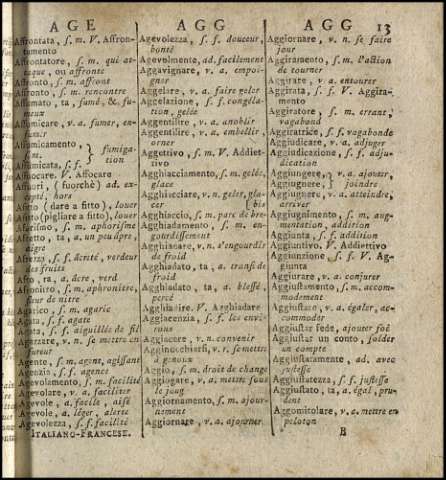 AGE
AGG
AGG 13
Affrontata, s. m. V. Affron-
tamento
Affrontatore, s. m. qui at-
taque, ou affronte
Affronto, s. m. affront
Affronto, s. m. rencontre
Affumato, ta, fumé, &. fu-
meux
Affumicare, v. a. fumer, en-
fumer
Affumicamento,
s. m. fumiga-
tion
Affumicata, s. f.
Affuocare. V. Affocare
Affuori, (fuorchè) ad. ex-
cepté, hors
Afitto (dare a fitto), louer
Afitto (pigliare a fitto), louer
Aforismo, s. m. aphorisme
Afretto, ta, un peu âpre,
aigre
Afrezza, s. f. âcreté, verdeur
des fruits
Afro, ra, âcre, verd
Afronitro, s. m. aphronitre,
fleur de nitre
Agarico, s. m. agaric
Agata, s. f. agate
Agata, s. f. aiguillée de fil
Agazzare, v. n. se mettre en
fureur
Agente, s. m. agent, agissant
Agenzia, s. f. agence
Agevolamento, s. m. facilité
Agevolare, v. a. faciliter
Agevole, a. facile, aisé
Agevole, a. léger, alerte
Agevolezza, s. f. facilité
ITALIANO-FRANCESE.
Agevolezza, s. f. douceur,
bonté
Agevolmente, ad. facilement
Aggavignare, v. a. empoi-
gner
Aggelare, v. a. faire geler
Aggelazione, s. f. congéla-
tion, gelée
Aggentilire, v. a. anoblir
Aggentilire, v. a. embellir,
orner
Aggettivo, s. m. V. Addiet-
tivo
Agghiacciamento, s. m. gelée,
glace
Agghiacciare, v. n. geler, gla-
cer
Agghiaccio, s. m. parc de bre-
bis
Agghiadamento, s. m. en-
gourdissement
Agghiadare, v. n. s'engourdir
de froid
Agghiadato, ta, a. transi de
froid
Agghiadato, ta, a. blessé,
percé
Agghiaire. V. Agghiadare
Aggiacenzia, s. f. les envi-
rons
Aggiacere, v. n. convenir
Agginocchiarsi, v. r. se mettre
à genoux
Aggio, s. m. droit de change
Aggiogare, v. a. mettre sous
le joug
Aggiornamento, s. m. ajour-
nement
Aggiornare, v. a. ajourner
Aggiornare, v. n. se faire
jour
Aggiramento, s. m. l'action
de tourner
Aggirare, v. a. entourer
Aggirata, s. f. V. Aggira-
mento
Aggiratore, s. m. errant,
vagabond
Aggiratrice, s. f. vagabonde
Aggiudicare, v. a. adjuger
Aggiudicazione, s. f. adju-
dication
Aggiungere,
Aggiugnere,
v. a. ajouter,
joindre
Aggiugnere, v. a. atteindre,
arriver
Aggiugnimento, s. m. aug-
mentation, addition
Aggiunta, s. f. addition
Aggiuntivo. V. Addiettivo
Aggiunzione, s. f. V. Ag-
giunta
Aggiurare, v. a. conjurer
Aggiustamento, s. m. accom-
modement
Aggiustare, v. a. égaler, ac-
commoder
Aggiustar fede, ajouter foi
Aggiustar un conto, solder
un compte
Aggiustatamente, ad. avec
justesse
Aggiustatezza, s. f. justesse
Aggiustato, ta, a. égal, pru-
dent
Aggomitolare, v. a. mettre en
peloton
B